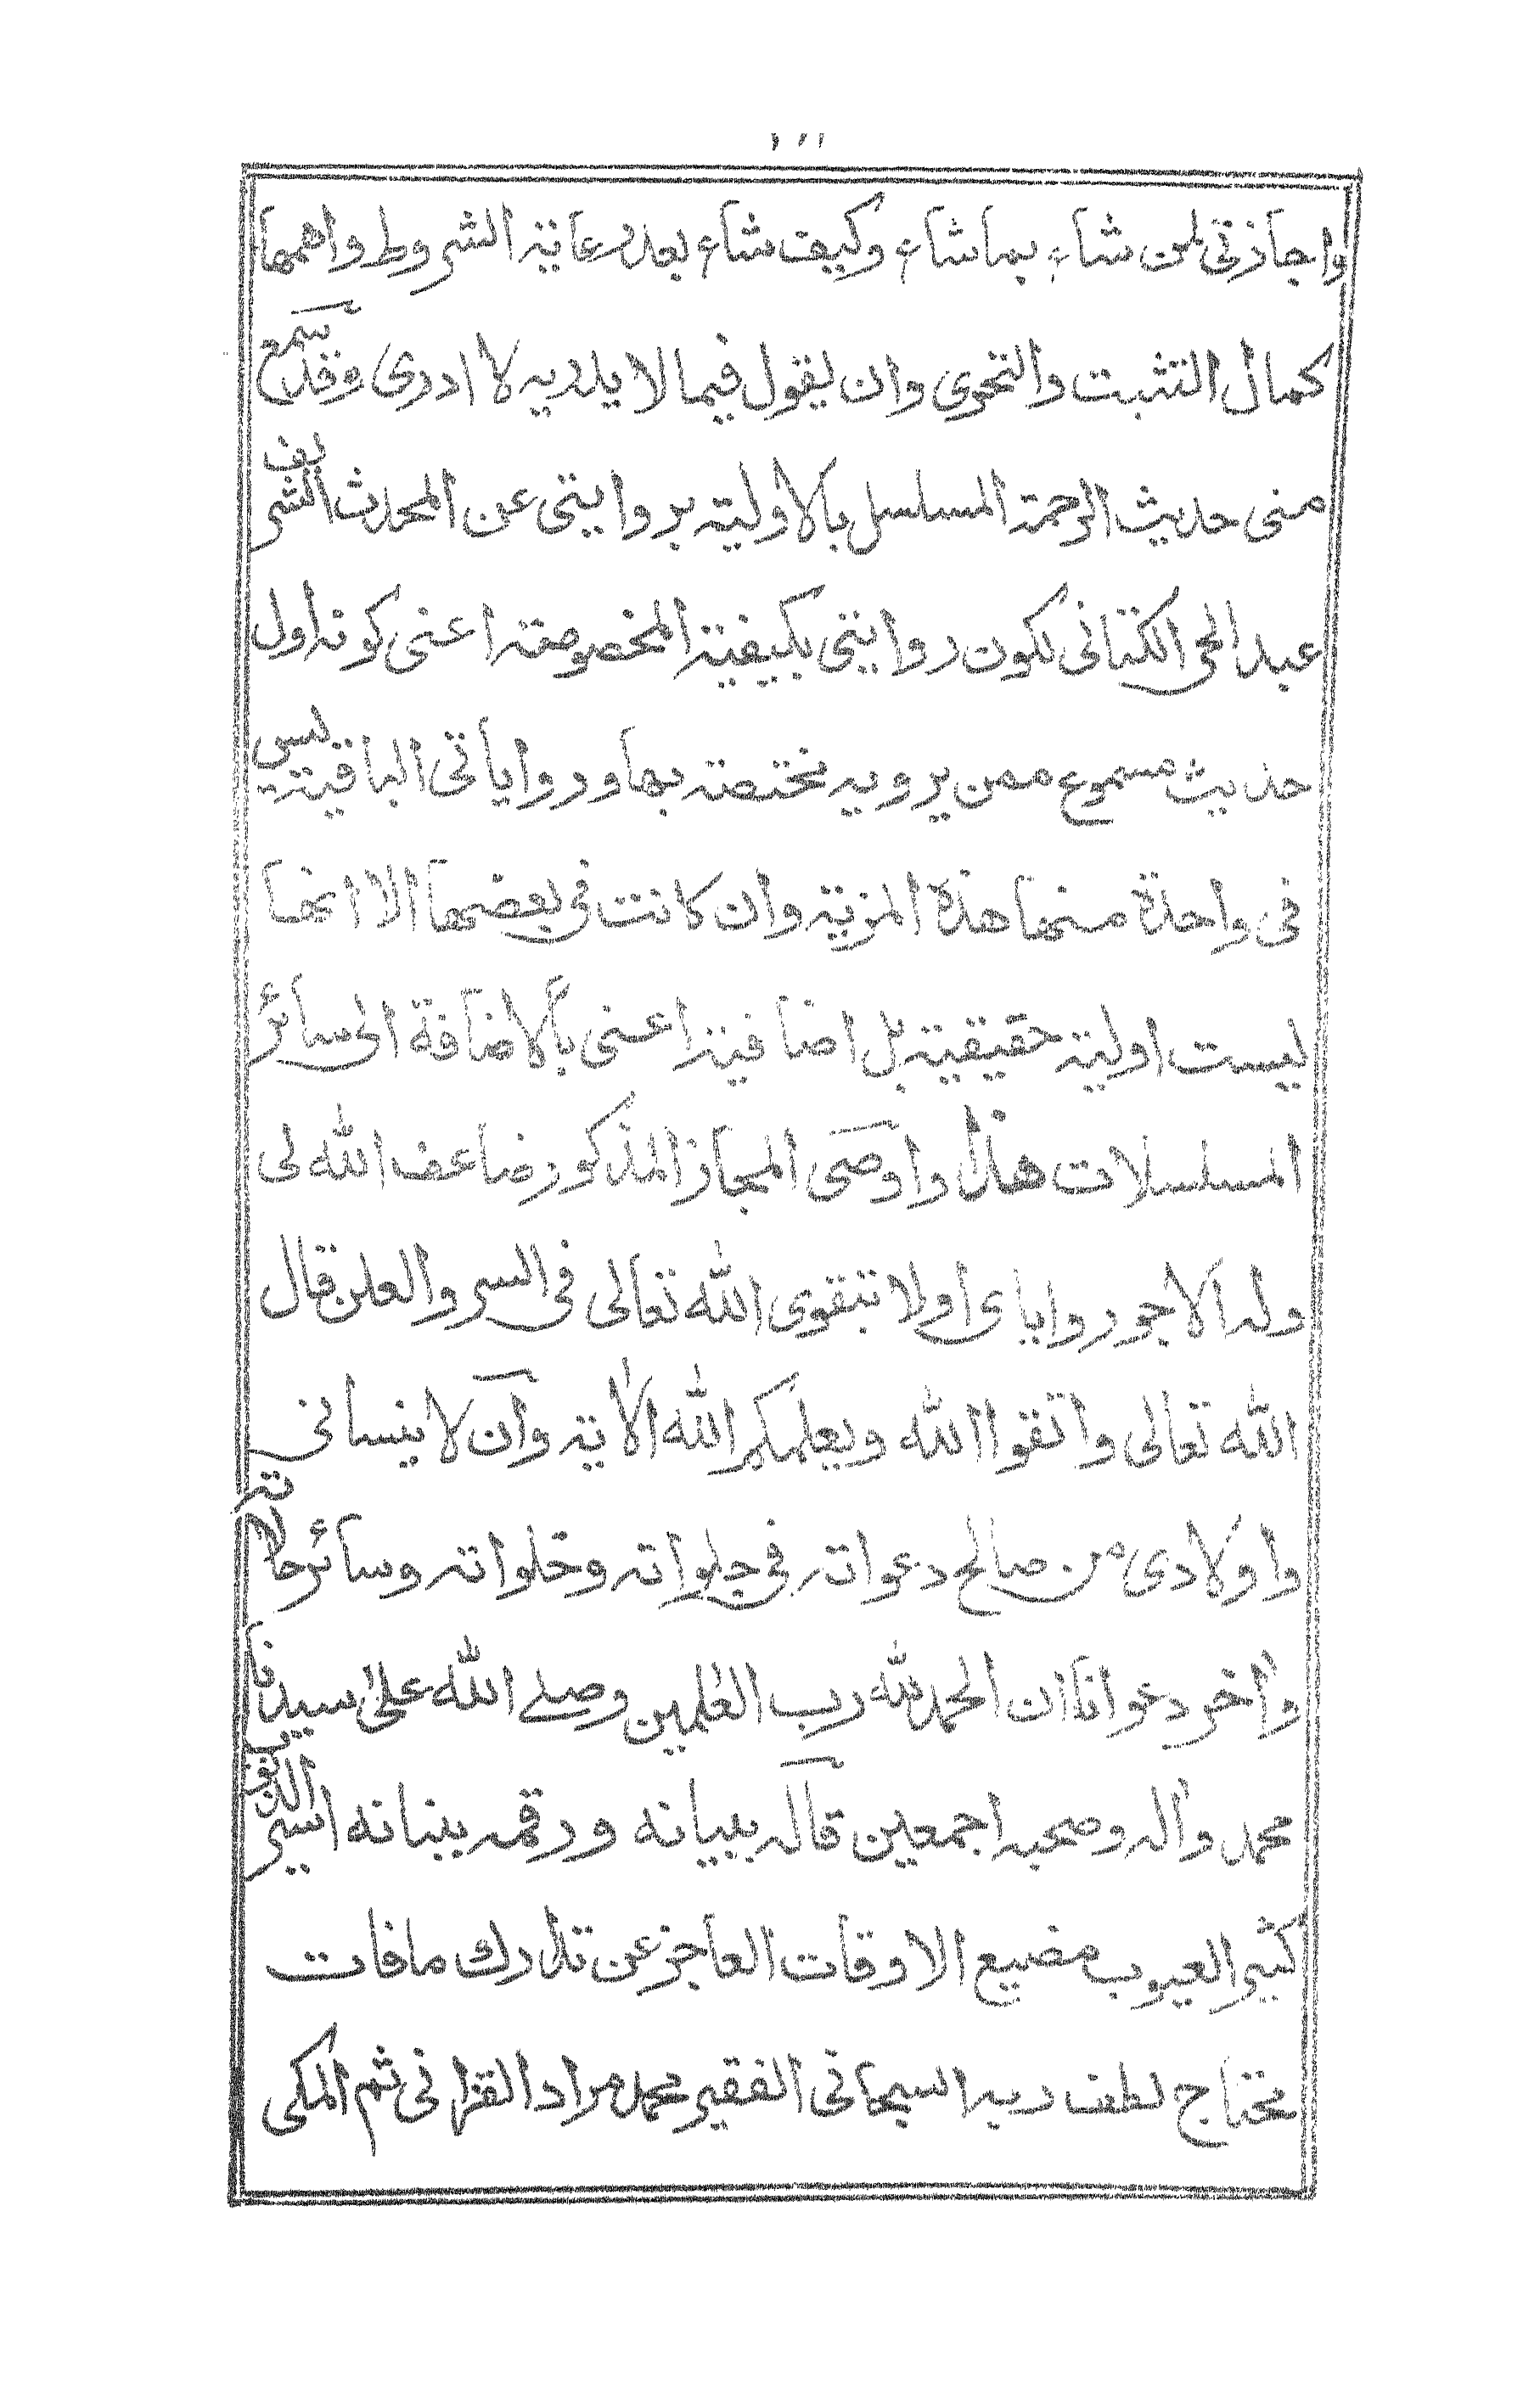 واجازتي لمن شاء بما شاء وكيف شاء بعد رعاية الشروط واهمها
كمال التثبت والتحري وان يقول فيما لا يدريه لا ادري وقد سمع
مني حديث الرحمة المسلسل بالاولية بروايتي عن المحدث الشريف
عبد الحي الكتاني لكون روايتي بكيفية المخصوصة اعني كونه اول
حديث مسموع ممن يرويه مختصة بها و رواياتي الباقية ليس
في واحدة منها هذة المزية وان كانت في بعضها الا انها
ليست اولية حقيقية بل اضافية اعني بالاضافة الى سائر
المسلسلات هذا واوصى المجاز المذكور ضاعف الله لي
وله الاجور واياى اولا بتقوى الله تعالى في السر والعلن قال
الله تعالى واتقوا الله ويعلمكم الله الاية وان لا ينساني
واولادى من صالح دعواته في جلواته وخلواته وسائر حالاته
وأخر دعوانا ان الحمد لله رب العلمين وصلے الله على سيدنا
محمد وأله وصحبه اجمعين قاله ببيانه ورقمه ببنانه اسير الذنوب
كثير العيوب مضيع الاوقات العاجز عن تدارك ما فات
محتاج لطف ربه السبحاني الفقير محمد مراد القزاني ثم المكي